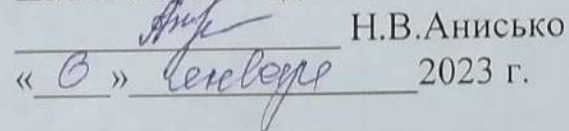 Н.В.Анисько
« 3 » января 2023 г.